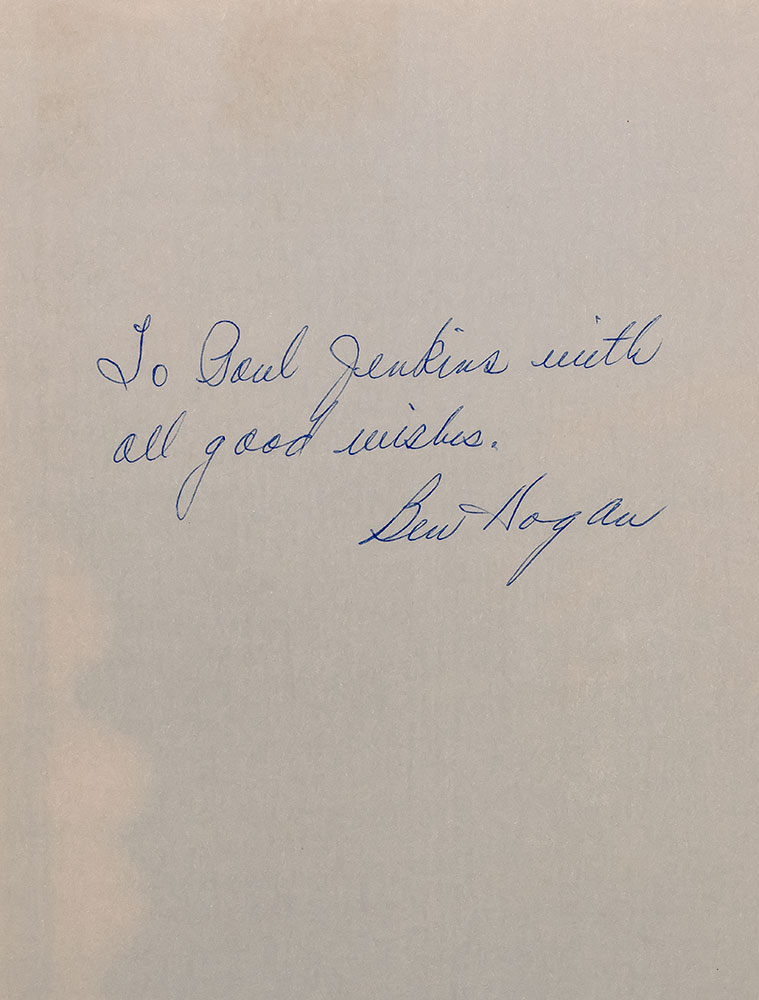 To Paul Jenkins with
all good wishes.
Ben Hogan